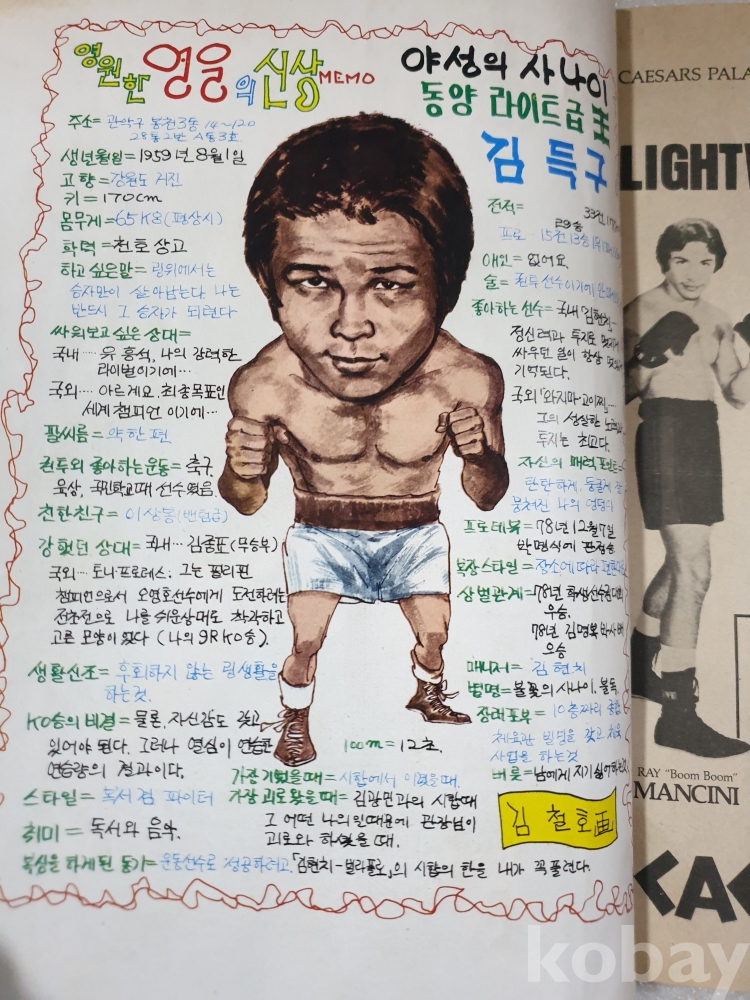 영원한 영웅의 신상 MEMO
야성의 사나이
동양 라이트급 王
김득구
주소= 관악구 봉천3동 14~120
28통 2반 A동 3호
생년월일=1959年 8월 1일
고향= 강원도 거진
키=170cm
몸무게=65K8 (편상시)
학력=천호상고
하고 싶은말= 링위에서는
승자만이 살아남는다 나는
반드시 그 승자가 되련다
싸워보고 싶은 상대=
국내···· 유흥석, 나의 강력한
라이벌이기에···
국외···· 아르게요, 최종목표인
세계 챔피언 이기에···
팔씨름= 약한편
권투외 좋아하는 운동= 축구
육상, 국민학교때 선수였음.
친한친구= 이상봉(밴텀급)
강했던 상대= 국내··· 김종표(무승부)
국외··· 토니프로레스. 그는 필리핀
챔피언으로서 오영호선수에게 도전하려는
전초전으로 나를 쉬운상대로 착각하고
고른 모양이 였다 (나의 9R KO승).
생활신조= 후회하지 않는 링생활을
하는것.
KO승의 비결= 물론, 자신감도 갖고
있어야 된다. 그러나 열심이 연습한
연습량의 결과이다.
스타일= 독서점 파이터
취미= 독서와 음악.
복싱을 하게된 동기= 운동선수로 성공하려고.「김현치-벤 빌라플로」의 시합의 한을 내가 꼭 풀련다.
전적=
29승
프로 15전 13승
애인= 없어요.
술= 권투선수이기에
좋아하는 선수= 국내「김현치」···
정신력과 투지로
싸우던 일이 항상
기억된다.
국외「와지마·고이찌」···
그의 성실한
투지는 최고다.
자신의 매력포인트=
단단하게, 둥글게
뭉쳐진 나의
프로테뷰= 78년 12월 7일
박명식에 판정승
복장스타일= 장소에따라
상벌관계= 78년 학생선수권대회
우승.
78년 김명복박사배
우승
매니저= 김현치
별명= 불꽃의 사나이, 불독.
장래포부= 10층짜리 종합
체육관 빌딩을 갖고 체육
사업을 하는것
버릇= 남에게 지기 싫어하는것
100m=12초.
가장 기뻤을때= 시합에서 이겼을때.
가장 괴로왔을때= 김광민과의 시합때
그 어떤 나의 일때문에 관장님이
괴로와 하셨을때.
김철호 画
CAESARS PALA
LIGHTW
RAY "Boom Boom"
MANCINI
CAE
kobay